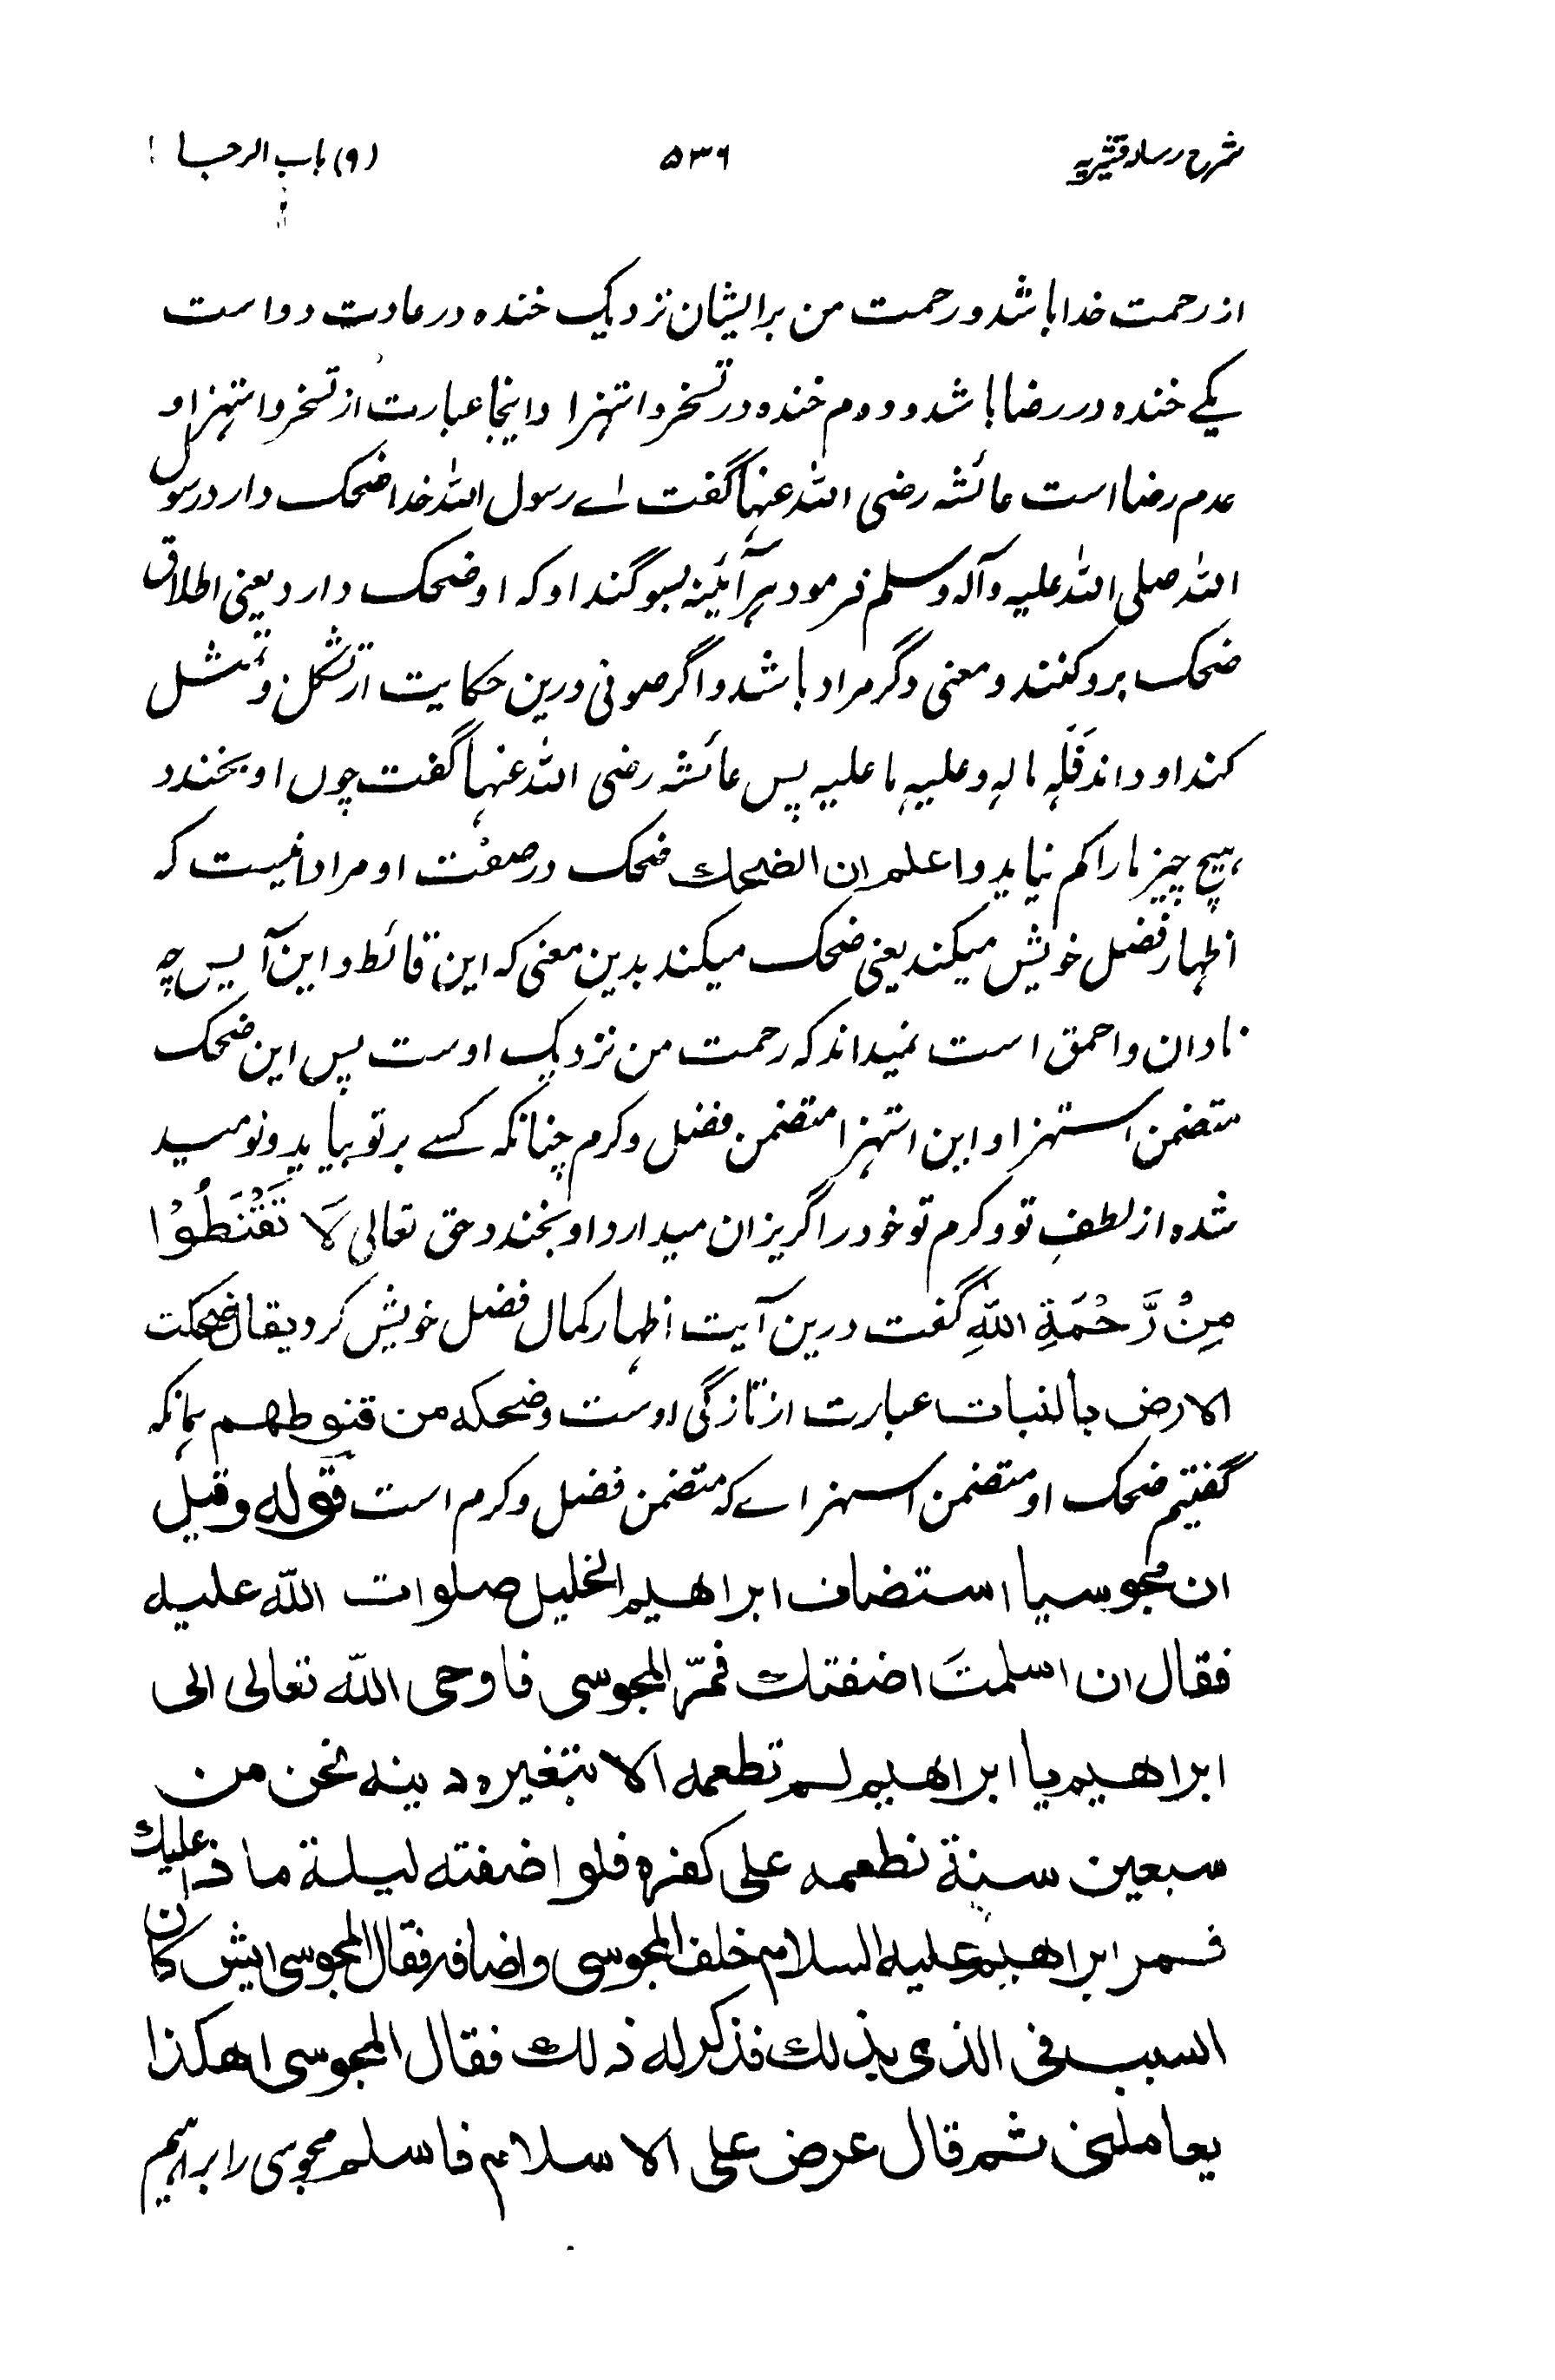 شرح رساله قشیریه ۵۳۶ (۹) باب الرجا
از رحمت خدا باشد و رحمت من برایشان نزدیک خنده در عادت دو است
یکے خنده در رضا باشد و دوم خنده در تسخر و استهزا و اینجا عبارت از تسخر و استهزا و
عدم رضا است عائشه رضی الله عنها گفت اے رسول الله خدا ضحک دارد رسول
الله صلی الله علیه و آله وسلم فرمود هر آئینه بسوگند او که او ضحک دارد یعنی اطلاق
ضحک برو کنند و معنی دگر مراد باشد و اگر صوفی درین حکایت از تشکل و تمثل
کند او داند فَلَه ماله و علیه ما علیه پس عائشه رضی الله عنها گفت چوں او بخندد
هیچ چیز ما را کم نیاید واعلم ان الضحك ضحک در صفت او مراد اینست که
اظهار فضل خویش میکند یعنی ضحک میکند بدین معنی که این قانط و این آیس چه
نادان و احمق است نمیداند که رحمت من نزدیک اوست پس این ضحک
متضمن استهزا و این استهزا متضمن فضل و کرم چنانکه کسے بر تو بیاید و نومید
شده از لطفِ تو و کرم تو خود را گریزان میدارد او بخندد حق تعالی لَا تَقْنَطُوْا
مِنْ رَّحْمَةِ اللهِ گفت درین آیت اظهار کمال فضل خویش کرد یقال ضحکت
الارض بالنبات عبارت از تازگی اوست وضحکه من قنوطهم بمانکه
گفتیم ضحک او متضمن استهزاے که متضمن فضل و کرم است قوله وقیل
ان مجوسیا استضاف ابراهیم الخلیل صلوات الله علیه
فقال ان اسلمتَ اضفتك فمرّ المجوسی فاوحی الله تعالی الی
ابراهیم یا ابراهیم لم تطعمه الا بتغیره دینه نحن من
سبعین سنة نطعمه علی کفره فلو اضفته لیلة ماذا علیك
فمر ابراهیم علیه السلام خلف المجوسی واضافه فقال المجوسی ایش کان
السبب فی الذی بذلك فذکر له ذلك فقال المجوسی اهکذا
یعاملنی ثم قال عرض علی الاسلام فاسلم مجوسی را براهیم